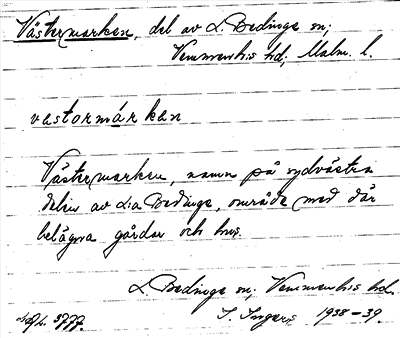 Västermarken, del av L. Bedinge sn;
Vemmenhös hd; Malm. l.
vastormárkan
Västermarken, namn på sydvästra
delen av L:a Bedinge, område med där
belägna gårdar och hus.
L. Bedinge sn; Vemmenhös hd.
3777. I. Ingers 1938-39.